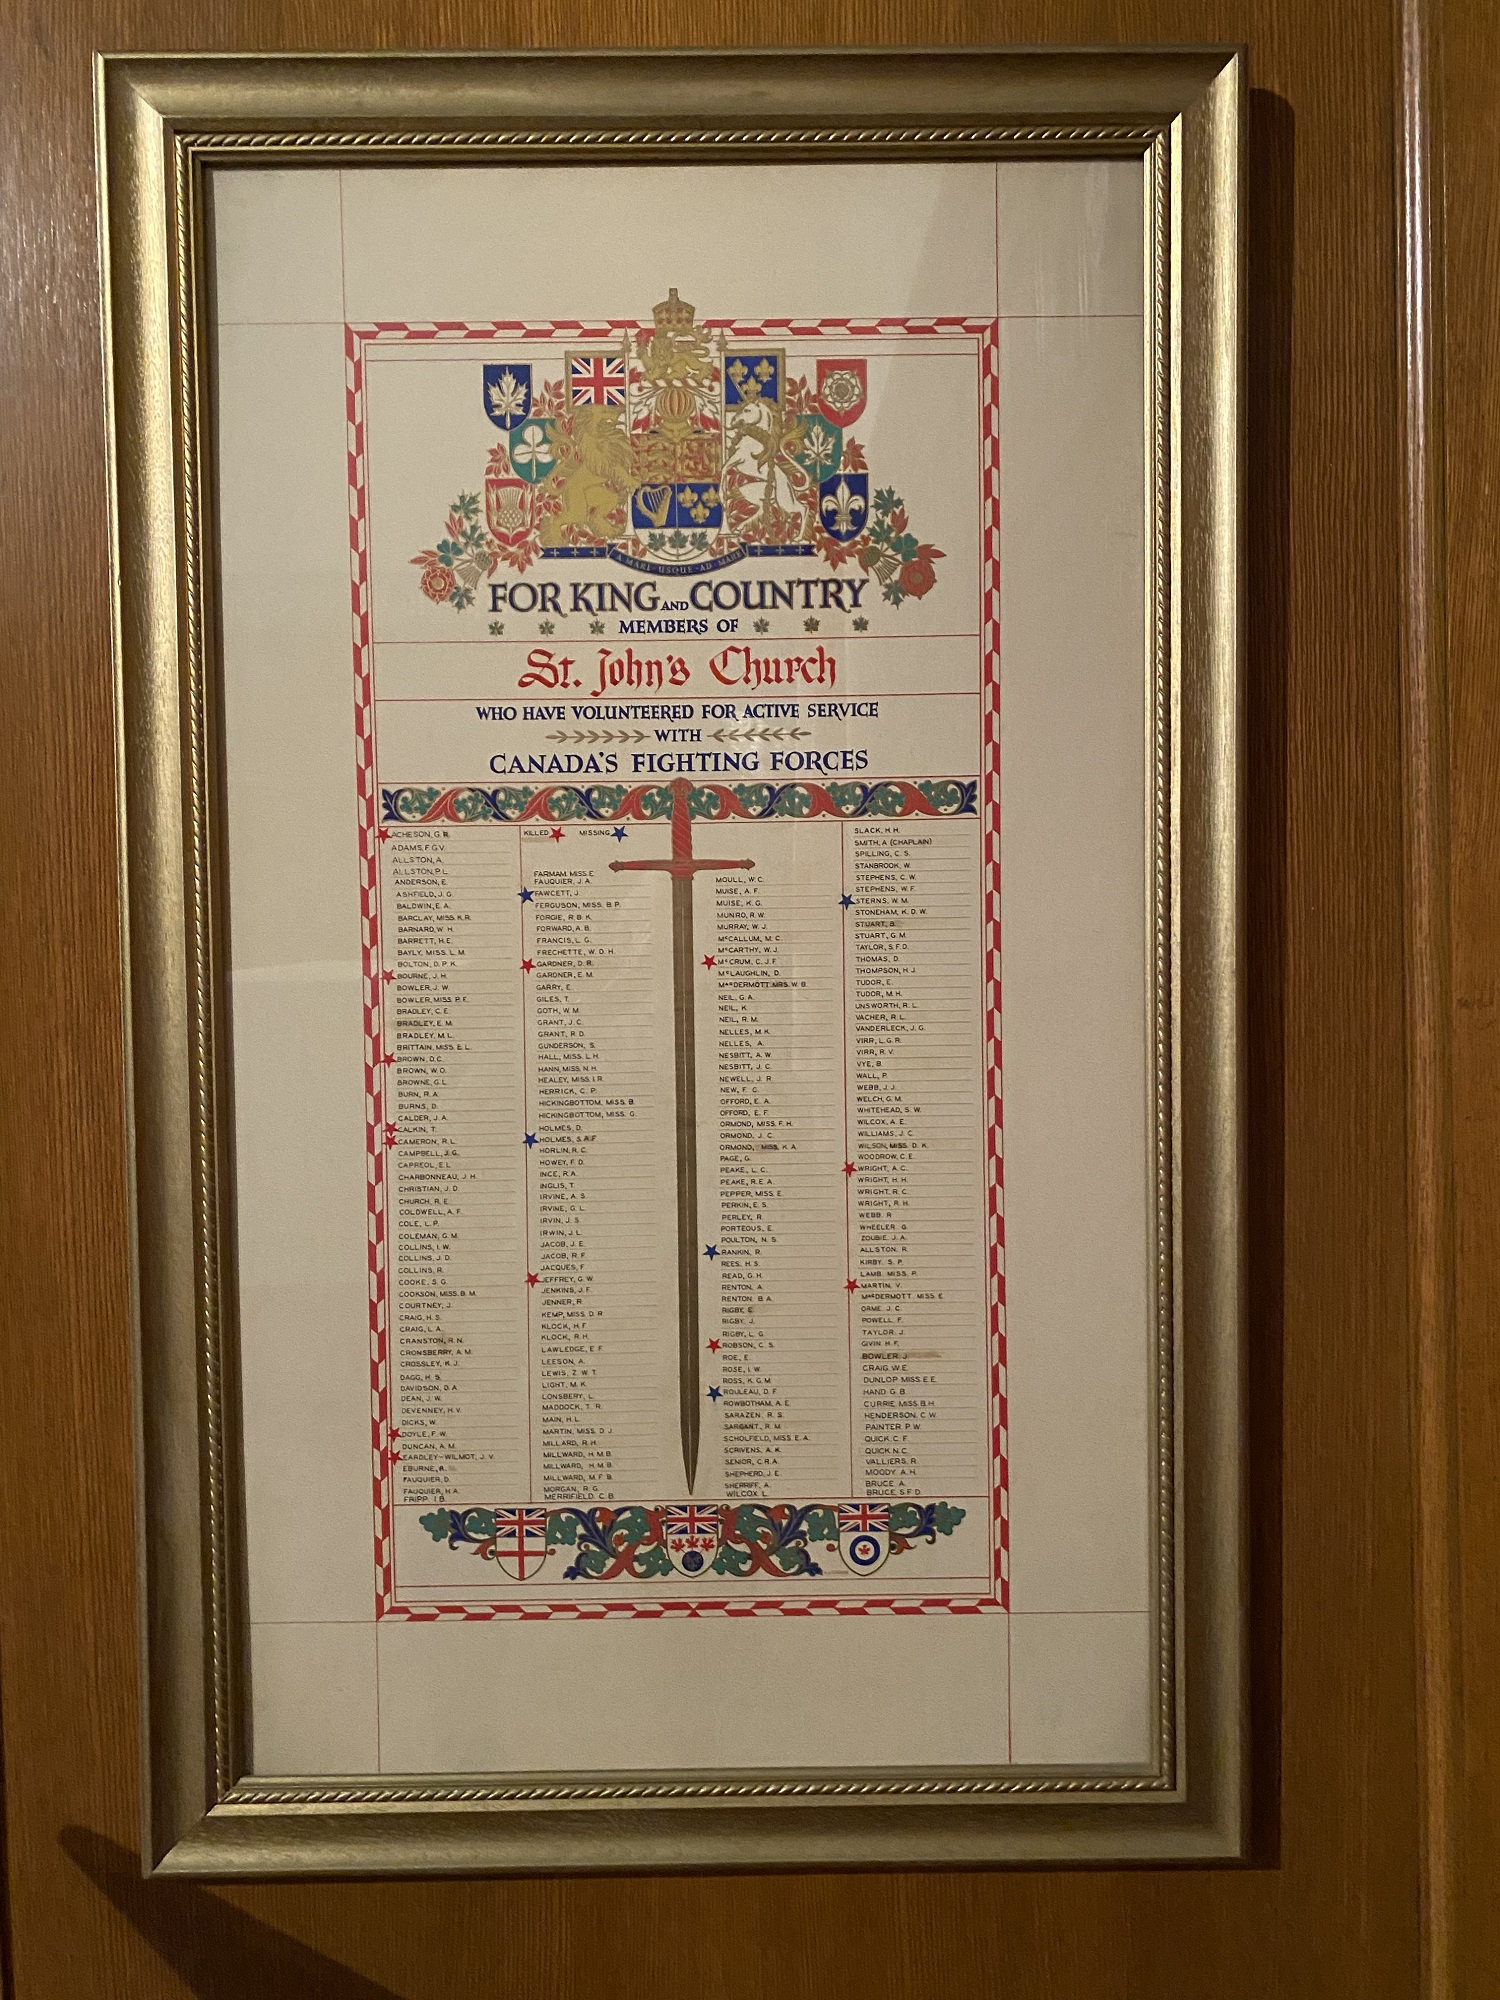 A MARI USQUE AD MARE
FOR KING AND COUNTRY
MEMBERS OF
St. John's Church
WHO HAVE VOLUNTEERED FOR ACTIVE SERVICE
WITH
CANADA'S FIGHTING FORCES
ACHESON, G.R.
ADAMS, F.G.V.
ALLSTON, A.
ALLSTON, P.L.
ANDERSON, E.
ASHFIELD, J.G.
BALDWIN, E.A.
BARCLAY, MISS K.R.
BARNARD, W.H.
BARRETT, H.E.
BAYLY, MISS L.M.
BOLTON, D.P.K.
BOURNE, J.H.
BOWLER, J.W.
BOWLER, MISS P.E.
BRADLEY, C.E.
BRADLEY, E.M.
BRADLEY, M.L.
BRITTAIN, MISS E.L.
BROWN, D.C.
BROWN, W.O.
BROWNE, G.L.
BURN, R.A.
BURNS, D.
CALDER, J.A.
CALKIN, T.
CAMERON, R.L.
CAMPBELL, J.G.
CAPREOL, E.L.
CHARBONNEAU, J.H.
CHRISTIAN, J.D.
CHURCH, R.E.
COLDWELL, A.F.
COLE, L.P.
COLEMAN, G.M.
COLLINS, I.W.
COLLINS, J.D.
COLLINS, R.
COOKE, S.G.
COOKSON, MISS B.M.
COURTNEY, J.
CRAIG, H.S.
CRAIG, L.A.
CRANSTON, R.N.
CRONSBERRY, A.M.
CROSSLEY, K.J.
DAGG, H.S.
DAVIDSON, D.A.
DEAN, J.W.
DEVENNEY, H.V.
DICKS, W.
DOYLE, F.W.
DUNCAN, A.M.
EARDLEY-WILMOT, J.V.
EBURNE, R.
FAUQUIER, D.
FAUQUIER, H.A.
FRIPP, I.B.
KILLED MISSING
FARMAM MISS E.
FAUQUIER, J.A.
FAWCETT, J.
FERGUSON, MISS B.P.
FORGIE, R.B.K.
FORWARD, A.B.
FRANCIS, L.G.
FRECHETTE, W.D.H.
GARDNER, D.R.
GARDNER, E.M.
GARRY, E.
GILES, T.
GOTH, W.M.
GRANT, J.C.
GRANT, R.D.
GUNDERSON, S.
HALL, MISS L.H.
HANN, MISS N.H.
HEALEY, MISS I.R.
HERRICK, C.P.
HICKINGBOTTOM, MISS B.
HICKINGBOTTOM, MISS G.
HOLMES, D.
HOLMES, S.A.F.
HORLIN, R.C.
HOWEY, F.D.
INCE, R.A.
INGLIS, T.
IRVINE, A.S.
IRVINE, G.L.
IRVIN, J.S.
IRWIN, J.L.
JACOB, J.E.
JACOB, R.F.
JACQUES, F.
JEFFREY, G.W.
JENKINS, J.F.
JENNER, R.
KEMP, MISS D.R.
KLOCK, H.F.
KLOCK, R.H.
LAWLEDGE, E.F.
LEESON, A.
LEWIS, Z.W.T.
LIGHT, M.K.
LONSBERY, L.
MADDOCK, T.R.
MAIN, H.L.
MARTIN, MISS D.J.
MILLARD, R.H.
MILLWARD, H.M.B.
MILLWARD, H.M.B.
MILLWARD, M.F.B.
MORGAN, R.G.
MERRIFIELD, C.B.
MOULL, W.C.
MUISE, A.F.
MUISE, K.G.
MUNRO, R.W.
MURRAY, W.J.
McCALLUM, M.C.
McCARTHY, W.J.
McCRUM, C.J.F.
McLAUGHLIN, D.
MacDERMOTT MRS. W.B.
NEIL, G.A.
NEIL, K.
NEIL, R.M.
NELLES, M.K.
NELLES, A.
NESBITT, A.W.
NESBITT, J.C.
NEWELL, J.R.
NEW, F.C.
OFFORD, E.A.
OFFORD, E.F.
ORMOND, MISS F.H.
ORMOND, J.C.
ORMOND, MISS K.A.
PAGE, G.
PEAKE, L.C.
PEAKE, R.E.A.
PEPPER, MISS E.
PERKIN, E.S.
PERLEY, R.
PORTEOUS, E.
POULTON, N.S.
RANKIN, R.
REES, H.S.
READ, G.H.
RENTON, A.
RENTON, B.A.
RIGBY, E.
RIGBY, J.
RIGBY, L.G.
ROBSON, C.S.
ROE, E.
ROSE, I.W.
ROSS, K.G.M.
ROULEAU, D.F.
ROWBOTHAM, A.E.
SARAZEN, R.S.
SARGANT, R.M.
SCHOLFIELD, MISS E.A.
SCRIVENS, A.K.
SENIOR, C.R.A.
SHEPHERD, J.E.
SHERRIFF, A.
WILCOX L.
SLACK, H.H.
SMITH, A. (CHAPLAIN)
SPILLING, C.S.
STANBROOK, W.
STEPHENS, C.W.
STEPHENS, W.F.
STERNS, W.M.
STONEHAM, K.D.W.
STUART, B.
STUART, G.M.
TAYLOR, S.F.D.
THOMAS, D.
THOMPSON, H.J.
TUDOR, E.
TUDOR, M.H.
UNSWORTH, R.L.
VACHER, R.L.
VANDERLECK, J.G.
VIRR, L.G.R.
VIRR, R.V.
VYE, B.
WALL, P.
WEBB, J.J.
WELCH, G.M.
WHITEHEAD, S.W.
WILCOX, A.E.
WILLIAMS, J.C.
WILSON, MISS D.K.
WOODROW, C.E.
WRIGHT, A.C.
WRIGHT, H.H.
WRIGHT, R.C.
WRIGHT, R.H.
WEBB, R.
WHEELER, G.
ZOUBIE, J.A.
ALLSTON, R.
KIRBY, S.P.
LAMB, MISS P.
MARTIN, V.
MacDERMOTT MISS E.
ORME, J.C.
POWELL, F.
TAYLOR, J.
GIVIN H.F.
BOWLER J.
CRAIG W.E.
DUNLOP MISS E.E.
HAND G.B.
CURRIE MISS B.H.
HENDERSON, C.W.
PAINTER P.W.
QUICK, C.F.
QUICK N.C.
VALLIERS, R.
MOODY A.H.
BRUCE A.
BRUCE, S.F.D.